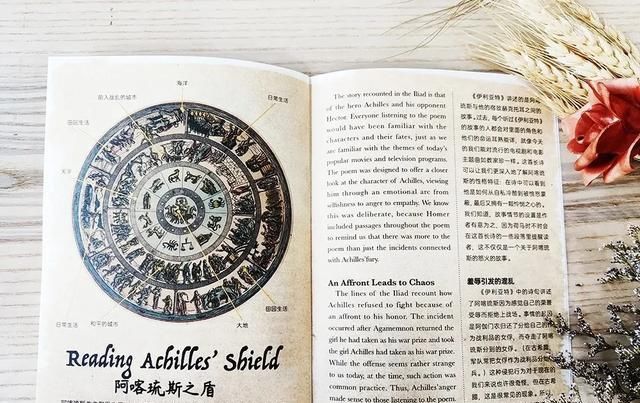 海洋
前入战乱的城市
日常生活
田园生活
天空
田园生活
日常生活
和平的城市
大地
Reading Achilles' Shield
阿喀琉斯之盾
The story recounted in the Iliad is that
of the hero Achilles and his opponent
Hector. Everyone listening to the poem
would have been familiar with the
characters and their fates, just as we
are familiar with the themes of today's
popular movies and television programs.
The poem was designed to offer a closer
look at the character of Achilles, viewing
him through an emotional arc from
selfishness to anger to empathy. We know
this was deliberate, because Homer
included passages throughout the poem
to remind us that there was more to the
poem than just the incidents connected
with Achilles' fury.
An Affront Leads to Chaos
The lines of the Iliad recount how
Achilles refused to fight because of
an affront to his honor. The incident
occurred after Agamemnon returned the
girl he had taken as his war prize and took
the girl Achilles had taken as war prize.
While the offense seems rather strange
to us today, at the time, such action was
common practice. Thus, Achilles' anger
made sense to those listening to the poem.
《伊利亚特》讲述的是阿喀
琉斯与他的宿敌赫克托耳之间的
故事。过去，每个听过《伊利亚特》
的故事的人都会对里面的角色和
他们的命运耳熟能详，就像今天
的我们能对流行的电视剧和电影
主题如数家珍一样。这首长诗
可以让我们更深入地了解阿喀琉
斯的性格特征：在诗中可以看到
他是如何从自私冷酷到被愤怒蒙
蔽，最后又拥有一颗怜悯之心的。
我们知道，故事情节的设置是作
者有意为之，因为荷马时不时会
在这首长诗的一些段落里提醒读
者，这不仅仅是一个关于阿喀琉
斯的怒火的故事。
羞辱引发的混乱
《伊利亚特》中的诗句讲述
了阿喀琉斯因为感觉自己的荣誉
受辱而拒绝上战场。事情的起因
是阿伽门农归还了分给自己的作
为战利品的女俘，而夺走了阿喀
琉斯分到的女俘。（在古希腊，
军队常把女俘作为战利品分给士
兵。）这种侵犯行为对于现在的
我们来说也许很奇怪，但在古希
腊，这是很常见的现象。所以，